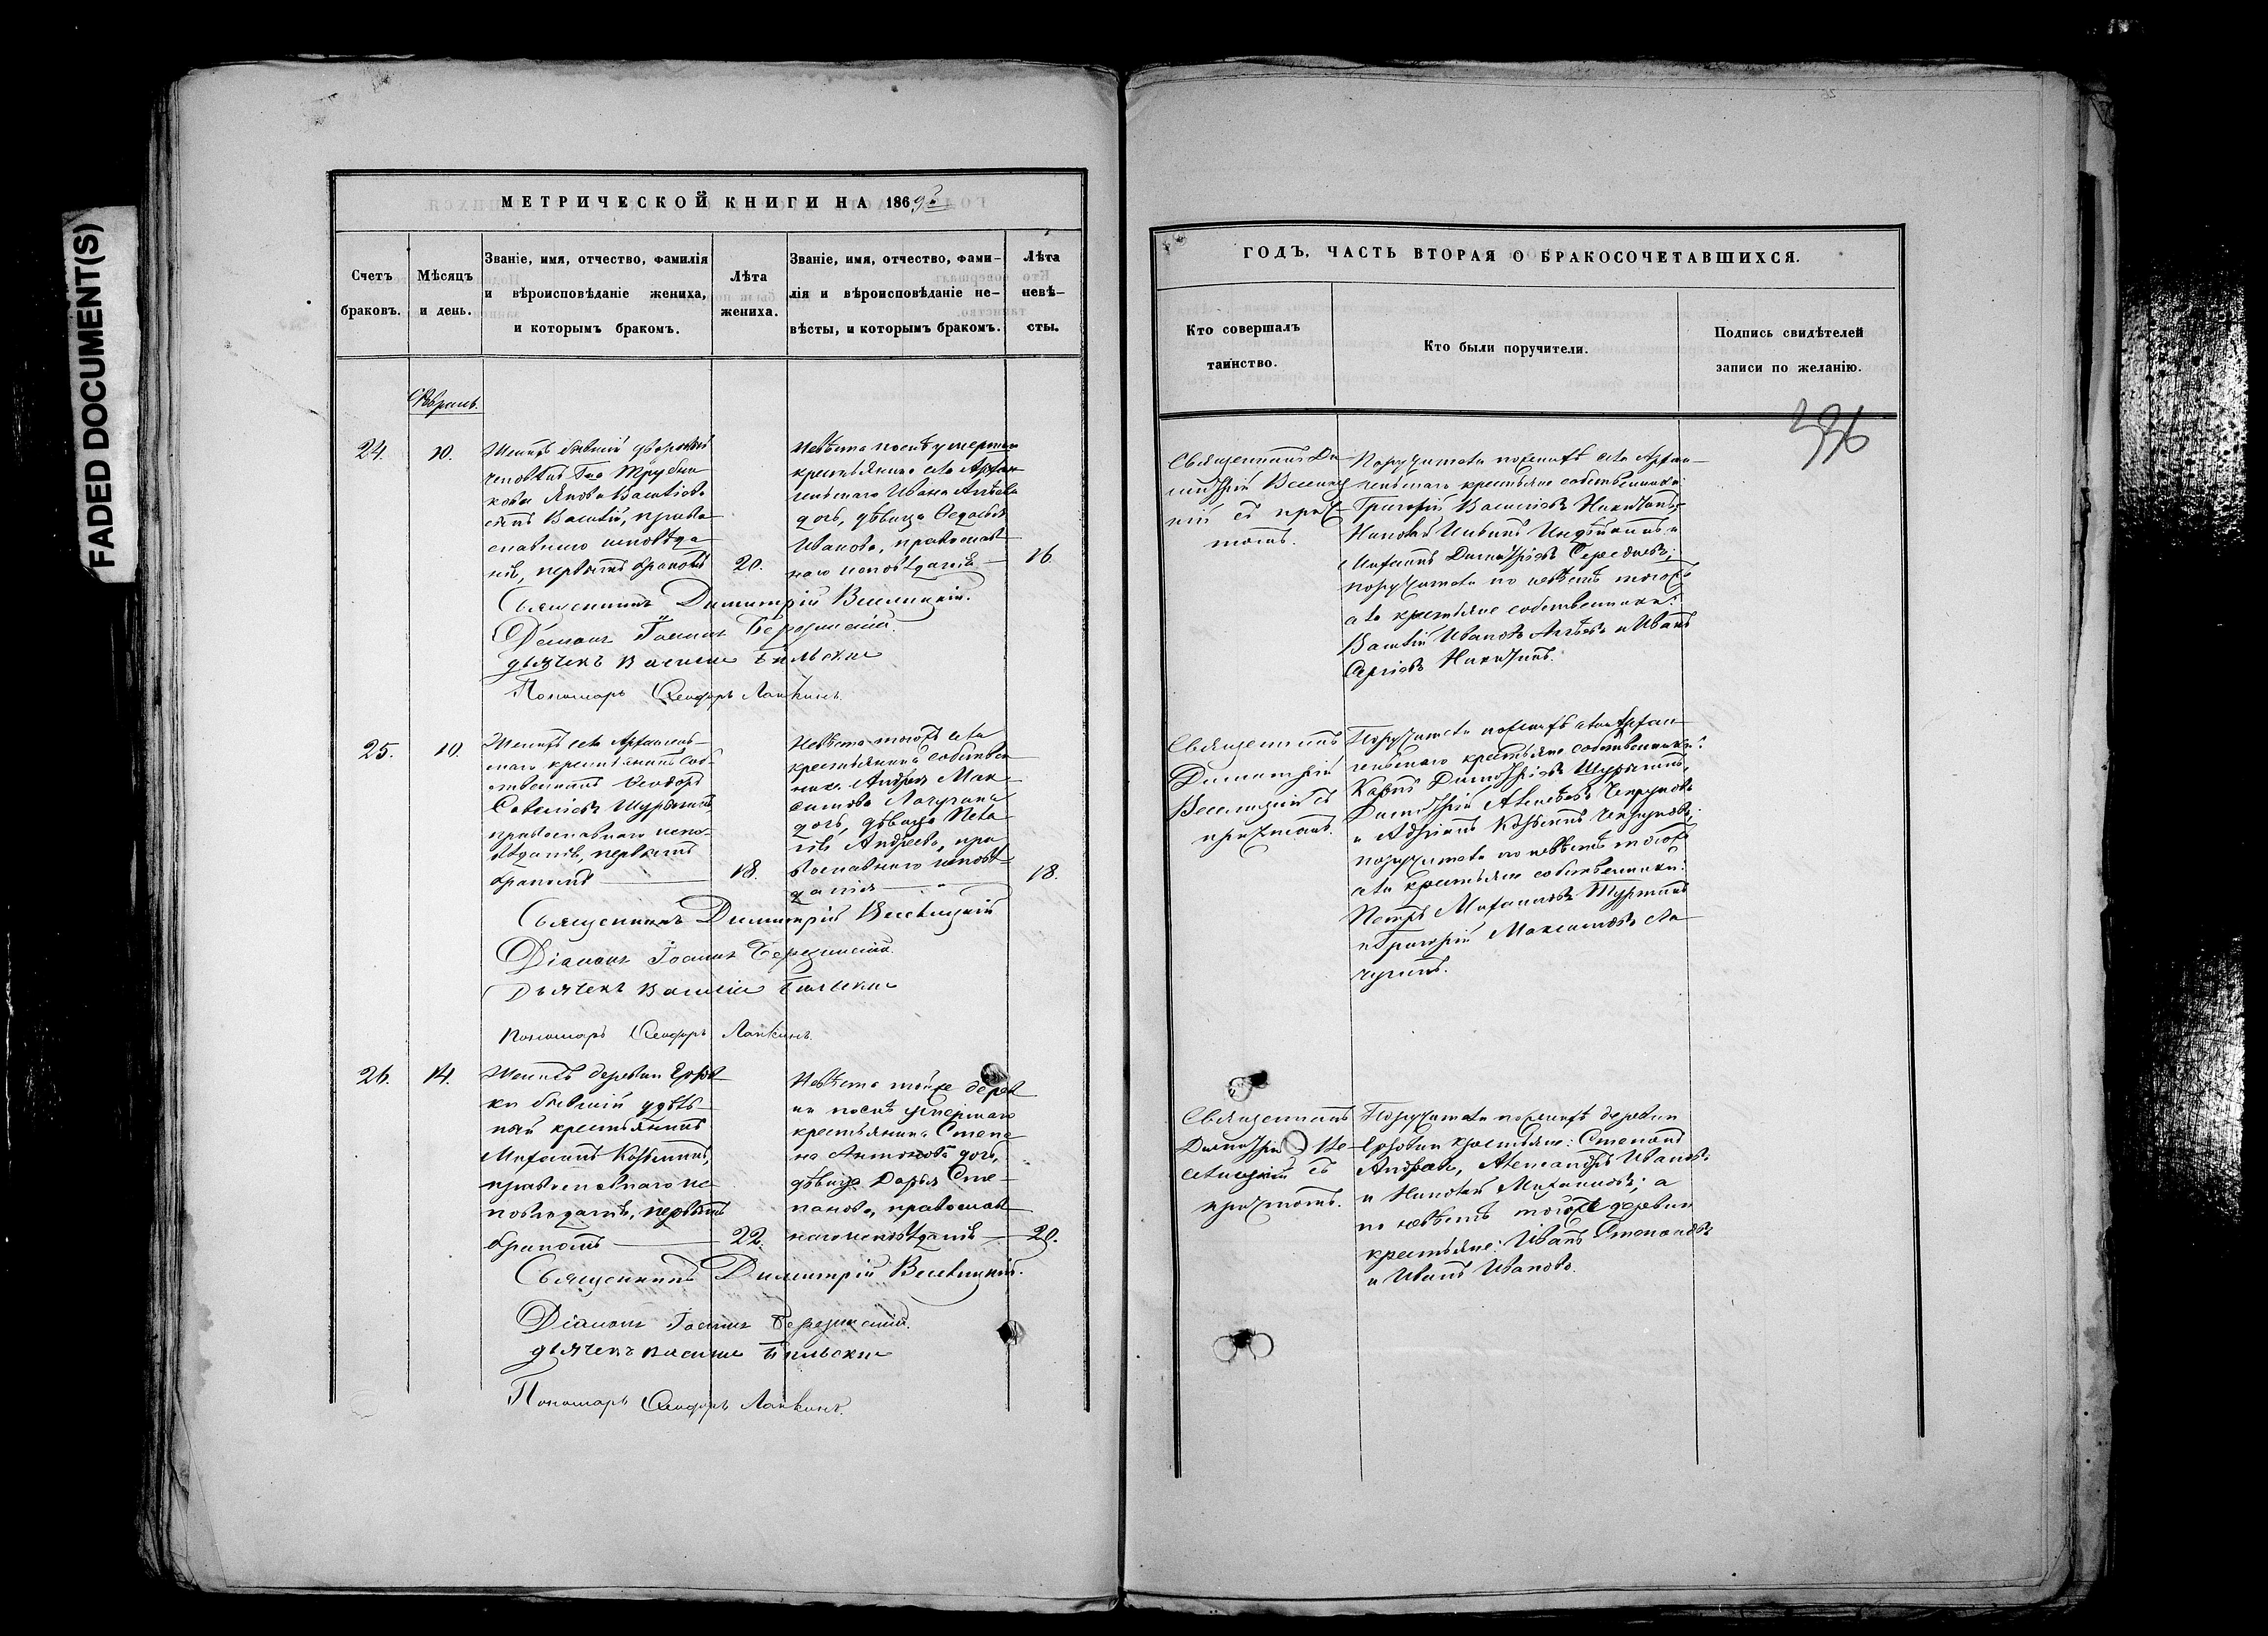 FADED DOCUMENT(S)
МЕТРИЧЕСКОЙ КНИГИ НА 1869й
Счетъ браковъ.
Мѣсяцъ и день.
Званіе, имя, отчество, фамилія
и вѣроисповѣданіе жениха,
и которымъ бракомъ.
Лѣта
жениха.
Званіе, имя, отчество, фами-
лія и вѣроисповѣданіе не-
вѣсты, и которымъ бракомъ.
Лѣта
невѣ-
сты.
Февраль.
24.
10.
Женихъ бывшій дворовый
человѣкъ
Якова Васильева
сынъ Василій, право-
славнаго исповѣда-
нія, первымъ бракомъ
20.
Невѣста послѣ умершаго
крестьянина села Архан-
гельскаго Ивана
дочь, дѣвица Ѳедосья
Иванова, православ-
наго исповѣданія
16.
Священникъ Димитрій Веселицкій.
Діаконъ Іоаннъ Березинскій.
дьячекъ Василій Бильскій
Пономарь Ѳеодоръ Лапкинъ.
25.
10.
Женихъ села Архангель-
скаго крестьянинъ соб-
ственникъ Ѳеодоръ
Савельевъ
православнаго испо-
вѣданія, первымъ
бракомъ
18.
Невѣста тогожъ села
крестьянина собствен-
ника Андрея Мак-
симова Лачугина
дочь, дѣвица Пела-
гія Андреева, пра-
вославнаго исповѣ-
данія
18.
Священникъ Димитрій Веселицкій
Діаконъ Іоаннъ Березинскій.
Дьячекъ Василій Бильскій
Пономарь Ѳеодоръ Лапкинъ.
26.
14.
Женихъ деревни
бывшій удѣль-
ный крестьянинъ
Михаилъ Козьминъ,
православнаго ис-
повѣданія, первымъ
бракомъ
22.
Невѣста тойже дерев-
ни послѣ умершаго
крестьянина Степа-
на Антонова дочь,
дѣвица Дарья Сте-
панова, православ-
наго исповѣданія
20.
Священникъ Димитрій Веселицкій.
Діаконъ Іоаннъ Березинскій.
дьячекъ Василій Бильскій
Пономарь Ѳеодоръ Лапкинъ.
ГОДЪ, ЧАСТЬ ВТОРАЯ О БРАКОСОЧЕТАВШИХСЯ.
Кто совершалъ
таинство.
Кто были поручители.
Подпись свидѣтелей
записи по желанію.
Священникъ Ди-
митрій Веселиц-
кій съ прич-
томъ.
Поручители по женихѣ села Архан-
гельскаго крестьяне собственники:
Григорій Васильевъ Никитинъ,
Михаилъ Димитріевъ Середневъ;
поручители по невѣстѣ тогожъ
села крестьяне собственники:
Василій Ивановъ и Иванъ
Сергіевъ Никитинъ.
Священникъ
Димитрій
Веселицкій съ
причтомъ.
Поручители по женихѣ села Архан-
гельскаго крестьяне собственники:
Карпъ Димитріевъ
Димитрій Алексѣевъ
и Адріанъ Козьминъ
поручители по невѣстѣ тогожъ
села крестьяне собственники:
Петръ Михаиловъ
и Григорій Максимовъ Ла-
чугинъ.
Священникъ
Димитрій Ве-
селицкій съ
причтомъ.
Поручители по женихѣ деревни
крестьяне: Степанъ
Андреевъ, Александръ Ивановъ
и Николай Михаиловъ; а
по невѣстѣ тогоже деревни
крестьяне: Иванъ Степановъ
и Иванъ Ивановъ.